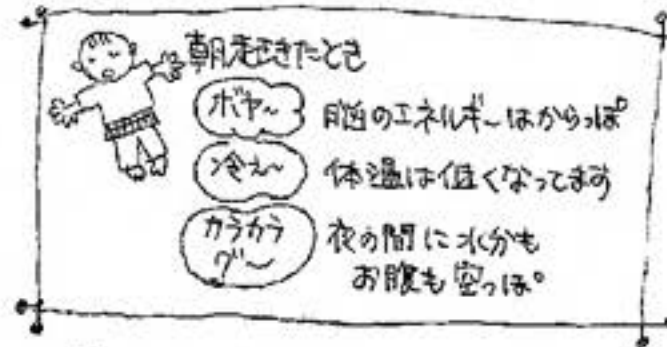 朝起きたとき
ボヤ〜 脳のエネルギーはからっぽ
冷え〜 体温は低くなってます
カラカラ
グ〜
夜の間に水分も
お腹も空っぽ。